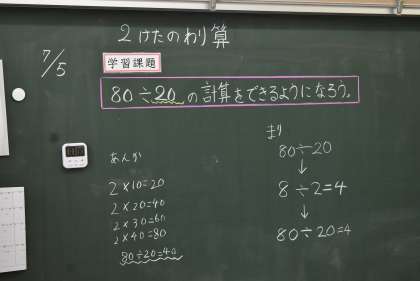 2けたのわり算
7/5
学習課題
80÷20の計算をできるようになろう。
あんか
2×10=20
2×20=40
2×30=60
2×40=80
80÷20=40
まり
80÷20
↓
8÷2=4
↓
80÷20=4